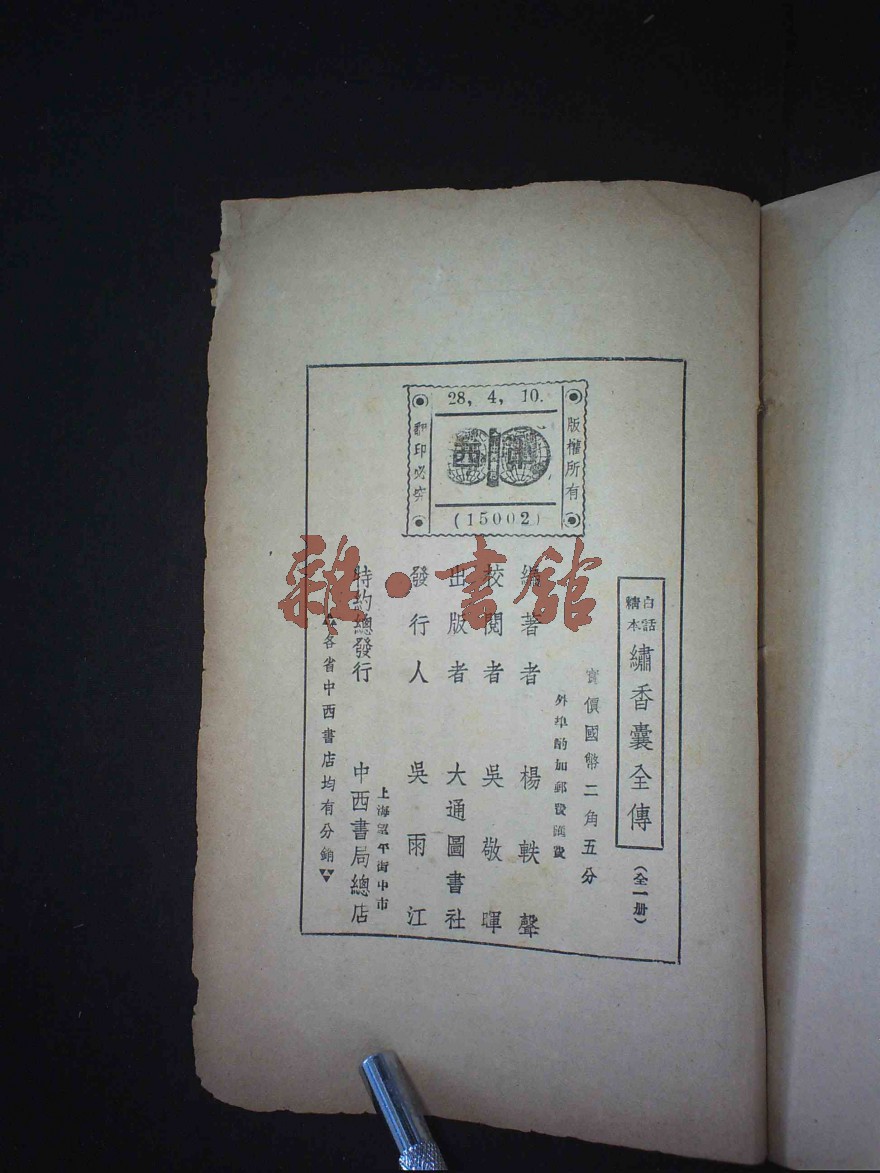 28, 4, 10.
版權所有
翻印必究
中西
(15002)
白話
精本
繡香囊全傳
(全一册)
實價國幣二角五分
外埠酌加郵費匯費
編著者 楊軼聲
校閱者 吳敬暉
出版者 大通圖書社
發行人 吳雨江
上海望平街中市
特約總發行 中西書局總店
各省中西書店均有分銷
雜·書館